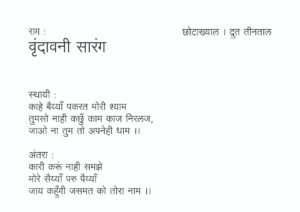 राग :
वृंदावनी सारंग
छोटाख्याल । द्रुत तीनताल
स्थायी :
काहे बैय्याँ पकरत मोरी श्याम
तुमसो नाही कछुँ काम काज निरलज,
जाओ ना तुम तो अपनेही धाम ।।
अंतरा :
कारी करूं नाही समझे
मोरे सैय्याँ परु पैय्याँ
जाय कहुँगी जसमत को तोरा नाम ।।